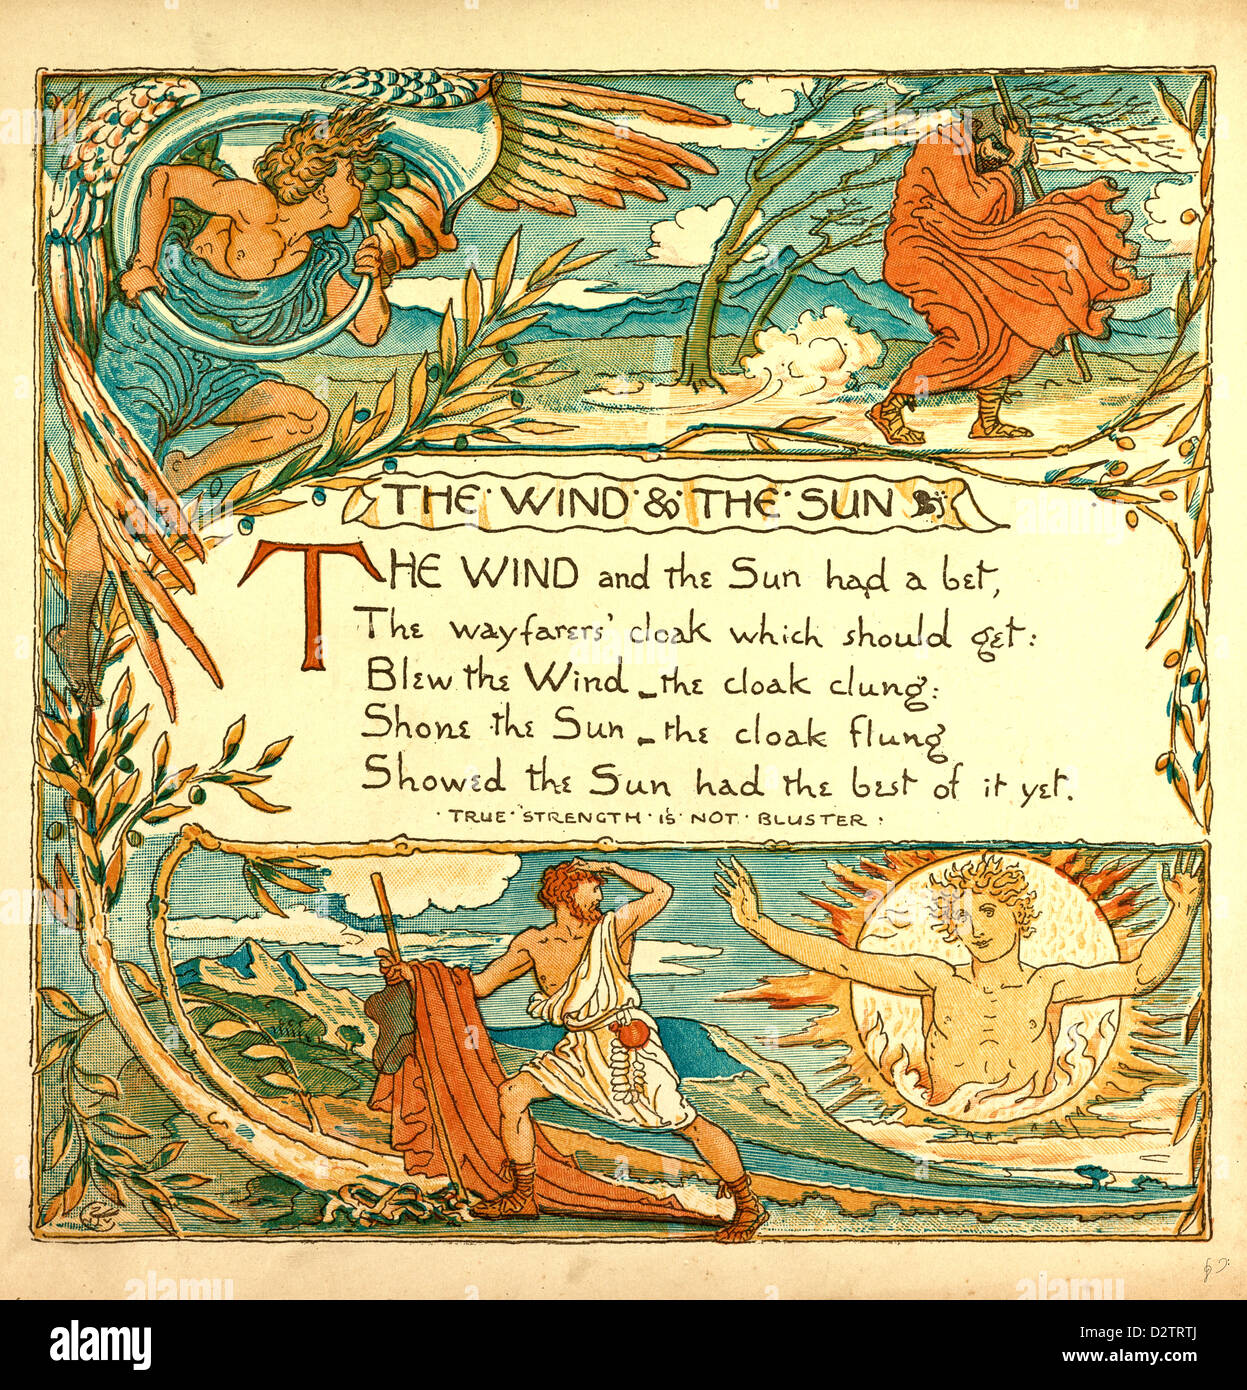 THE · WIND · & · THE · SUN
THE WIND and the Sun had a bet,
The wayfarers' cloak which should get:
Blew the Wind - the cloak clung:
Shone the Sun - the cloak flung
Showed the Sun had the best of it yet.
· TRUE · STRENGTH · IS · NOT · BLUSTER ·
alamy
Image ID: D2TRTJ
www.alamy.com